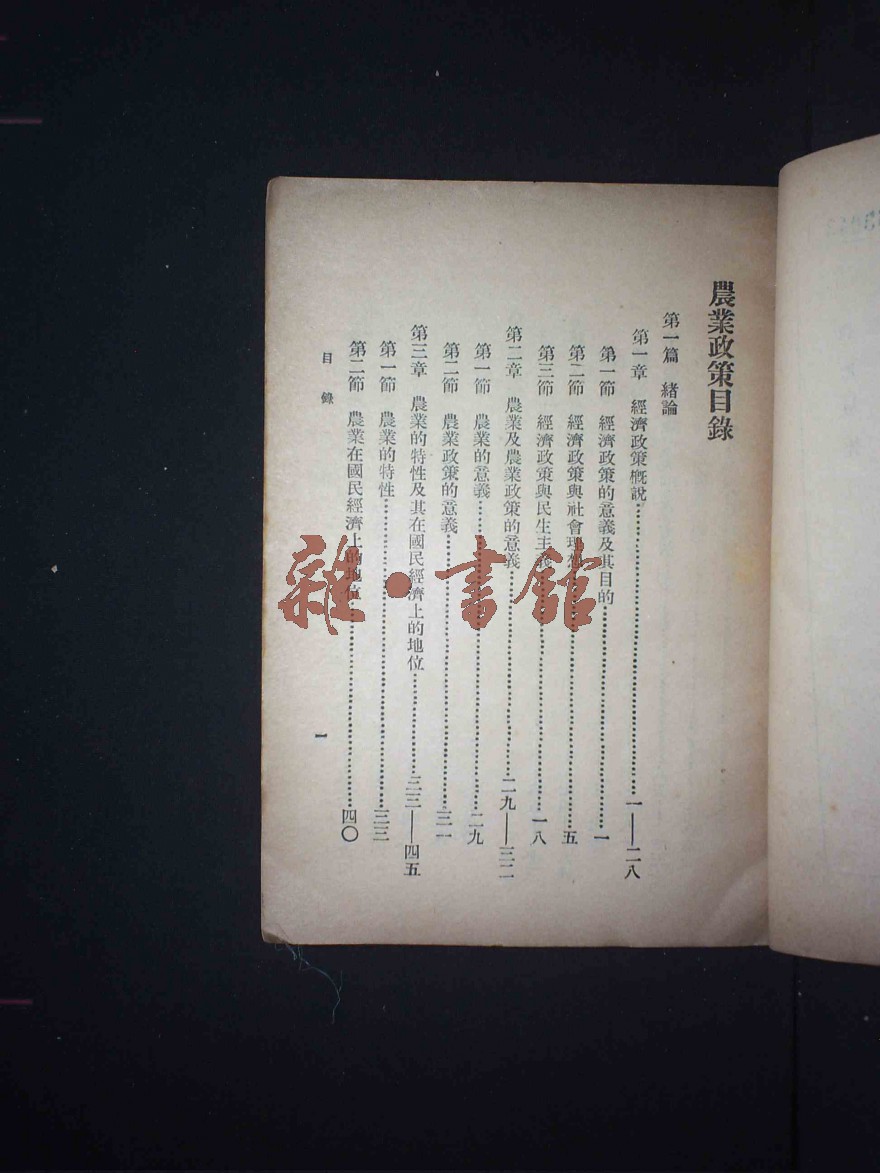 農業政策目錄
第一篇 緒論
第一章 經濟政策概說……一——二八
第一節 經濟政策的意義及其目的……一
第二節 經濟政策與社會理想……五
第三節 經濟政策與民生主義……一八
第二章 農業及農業政策的意義……二九——三二
第一節 農業的意義……二九
第二節 農業政策的意義……三一
第三章 農業的特性及其在國民經濟上的地位……三三——四五
第一節 農業的特性……三三
第二節 農業在國民經濟上的地位……四〇
目錄
一
雜·書館